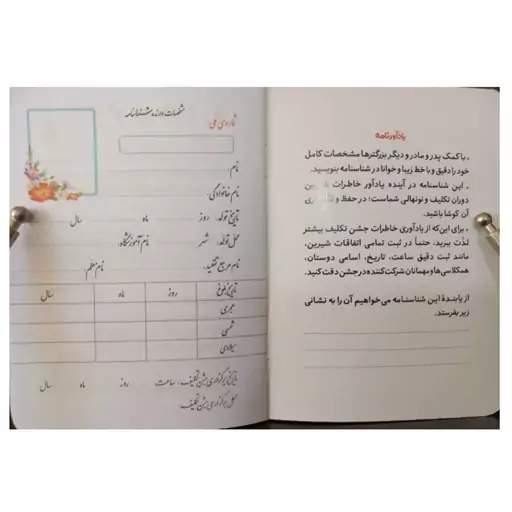 یادآورنامه
. با کمک پدر و مادر و دیگر بزرگترها مشخصات کامل
خود را دقیق و با خط زیبا و خوانا در شناسنامه بنویسید.
. این شناسنامه در آینده یادآور خاطرات
دوران تکلیف و نونهالی شماست؛ در حفظ و
آن کوشا باشید.
. برای این‌که از یادآوری خاطرات جشن تکلیف بیشتر
لذّت ببرید. حتماً در ثبت تمامی اتفاقات شیرین،
مانند ثبت دقیق ساعت، تاریخ، اسامی دوستان،
همکلاسی‌ها و مهمانان شرکت‌کننده در جشن دقت کنید.
از یابندهٔ این شناسنامه می‌خواهیم آن را به نشانی
زیر بفرستد.
مشخصات دارنده شناسنامه
شماره ی ملی:
نام:
نام خانوادگی:
تاریخ تولد: روز ماه سال
محل تولد: شهر نام آموزشگاه:
نام مرجع تقلید: نام معلم:
تاریخ بلوغ روز ماه سال
هجری
شمسی
میلادی
تاریخ برگزاری جشن تکلیف: ساعت روز ماه سال
محل برگزاری جشن تکلیف: